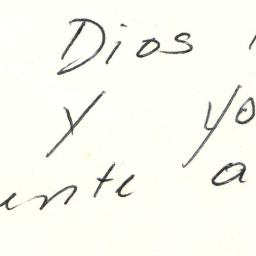 Dios
y yo
ente a